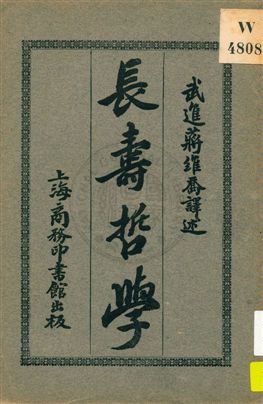 W
4808
武進蔣維喬譯述
長壽哲學
上海商務印書館出板